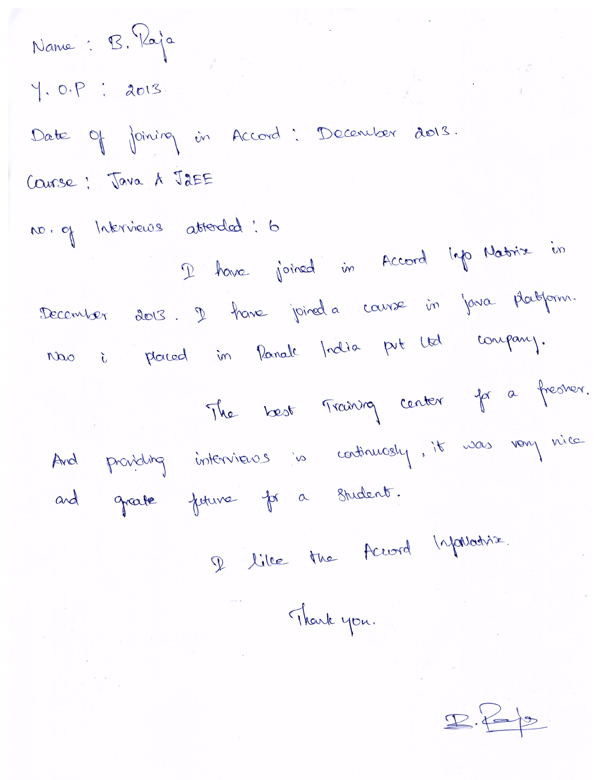 Name : B. Raja
Y. O. P : 2013
Date of joining in Accord : December 2013.
Course : Java & J2EE
No. of Interviews attended : 6
I have joined in Accord Info Matrix in
December 2013. I have joined a course in java platform.
Now i placed in India pvt Ltd company.
The best Training center for a fresher.
And providing interviews is continuosly, it was very nice
and greate future for a student.
I like the Accord InfoMatrix.
Thank you.
B. Raja